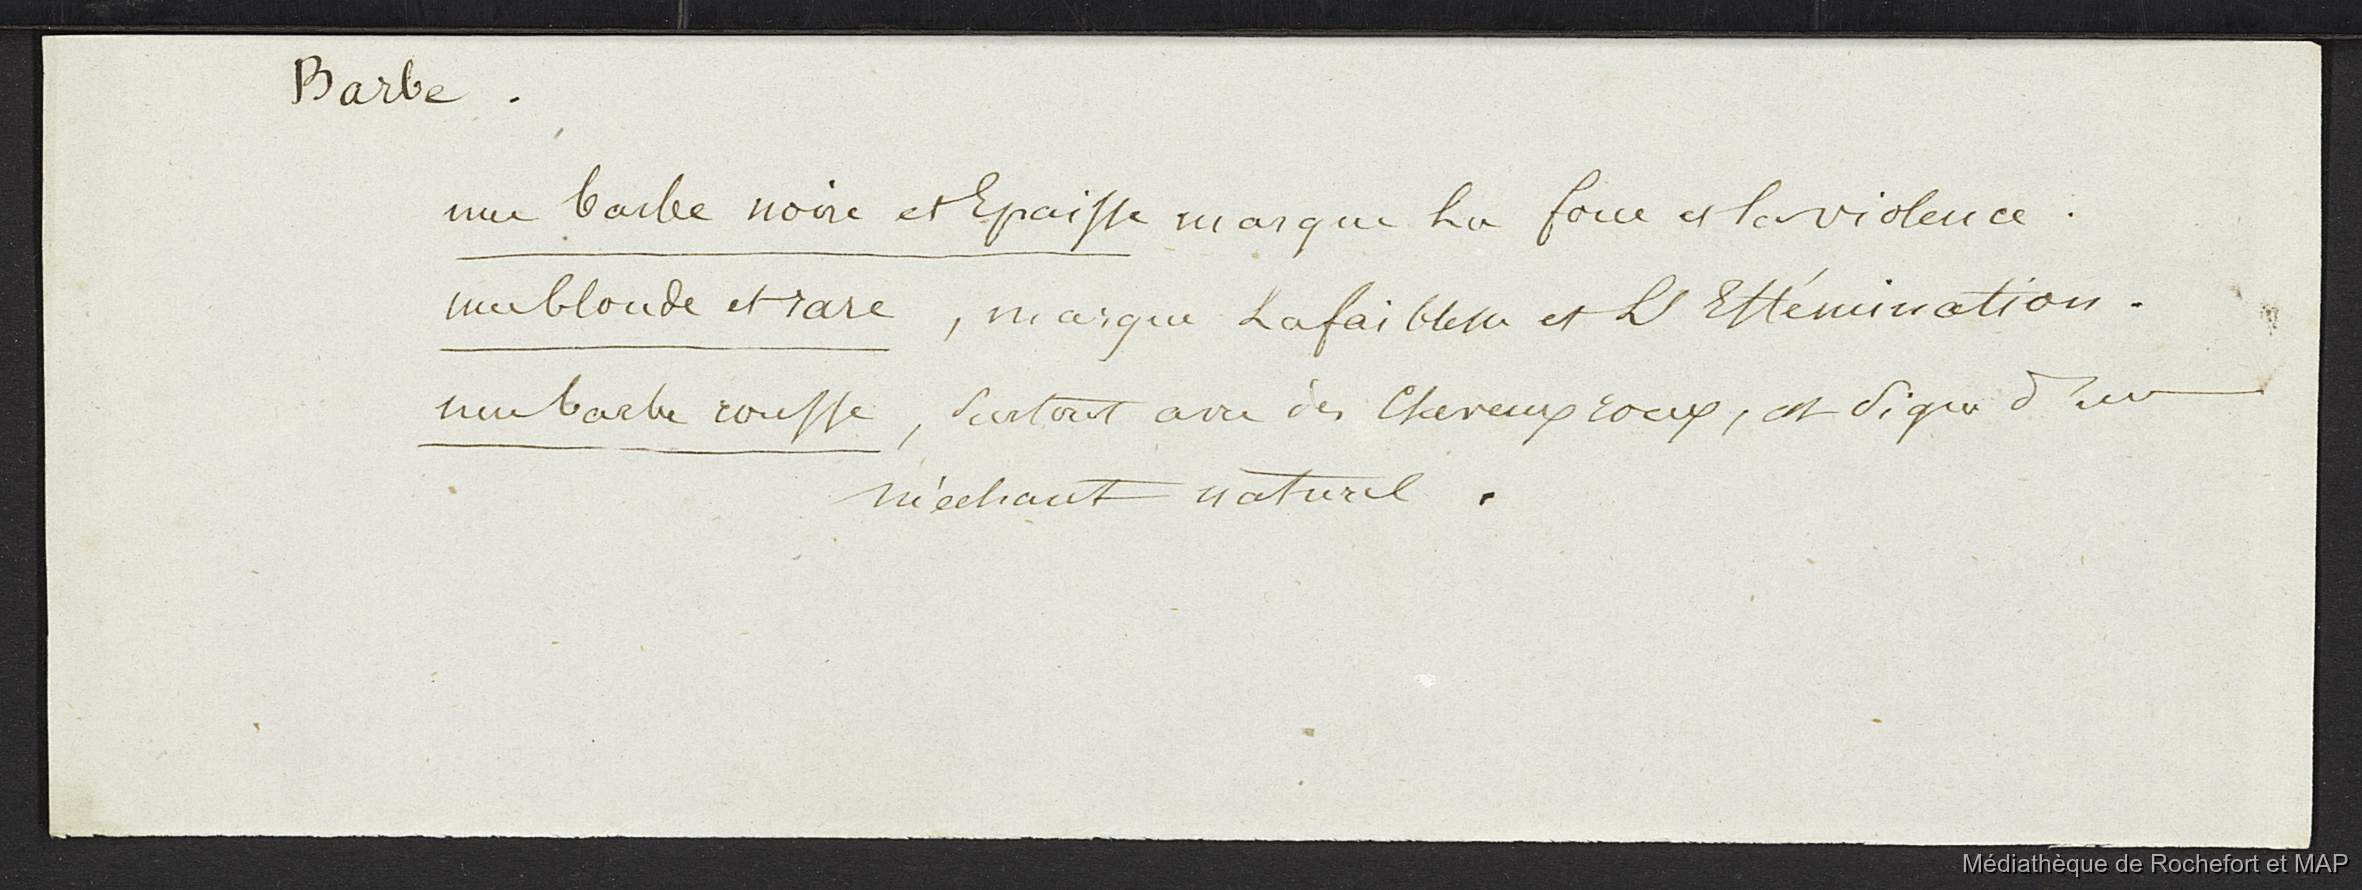 Barbe .
une barbe noire et Epaisse marque La force et la violence .
une blonde et rare , marque La faiblesse et L'Effémination .
une barbe rousse , surtout avec des Cheveux roux , est signe d'un
méchant naturel .
Médiathèque de Rochefort et MAP